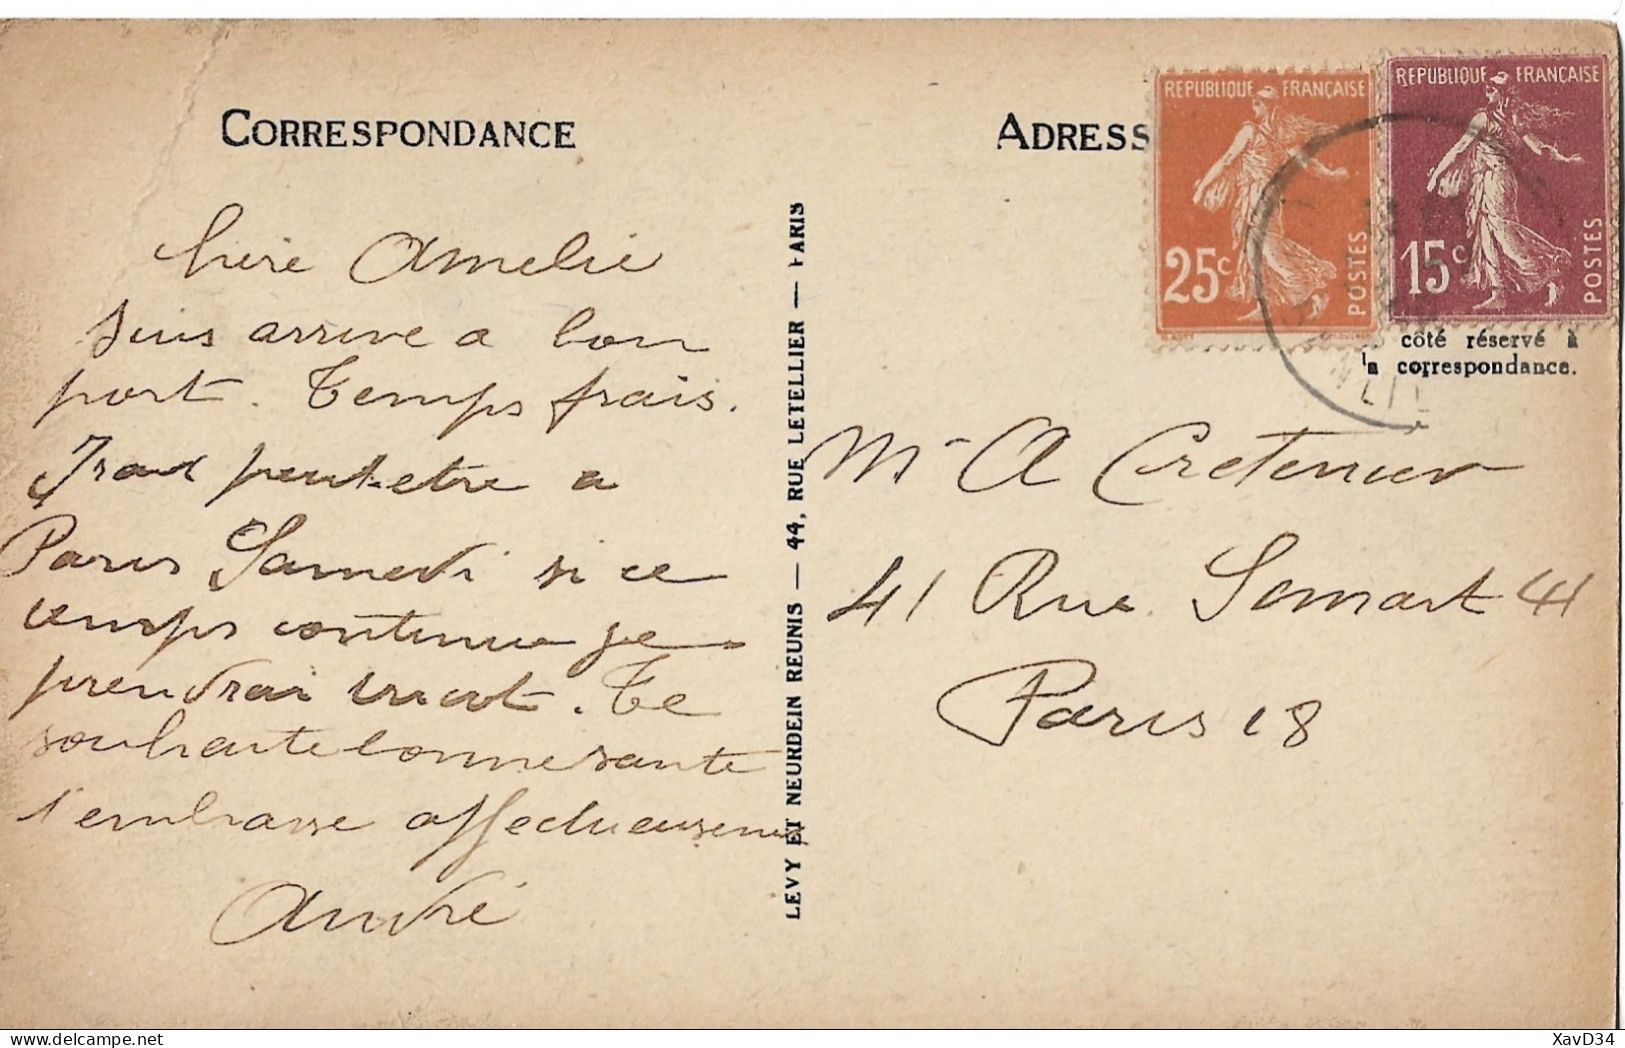 CORRESPONDANCE
chère Amelie
suis arrive a bon
port. Temps frais.
Irai peut-etre a
Paris Samedi si ce
temps continue je
prendrai
Te
souhaite bonne sante
t'embrasse affectueusement
André
LEVY ET NEURDEIN REUNIS — 44, RUE LETELLIER — PARIS
ADRESS
REPUBLIQUE FRANÇAISE
25c
POSTES
REPUBLIQUE FRANÇAISE
15c
POSTES
côté réservé à
la correspondance.
Mr A Cretenier
41 Rue Simart 41
Paris 18
XavD34